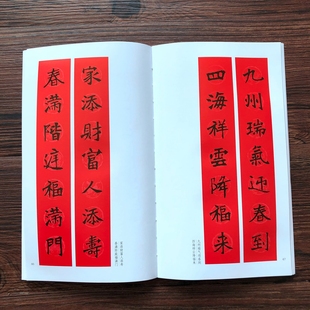 九州瑞氣迎春到
四海祥雲降福来
家添財富人添壽
春滿階庭福滿門